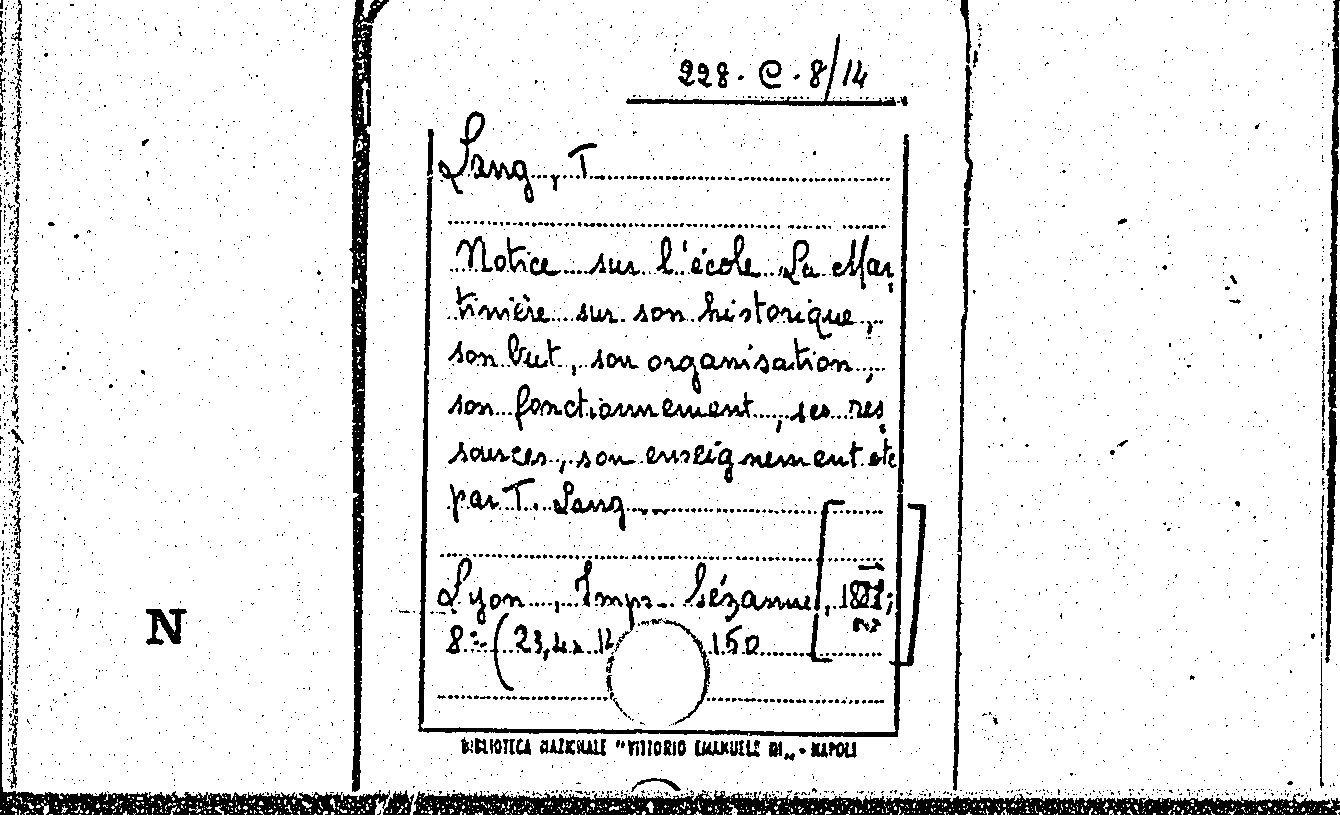 228. C. 8/14
Lang, T
Notice sur l'école La Mar
tinière sur son historique,
son but, son organisation,
son fonctionnement, ses res
sources, son enseignement etc
par T. Lang
Lyon, Imp.
8º (23,4x 14 150
N
BIBLIOTECA NAZIONALE "VITTORIO EMANUELE III" - NAPOLI